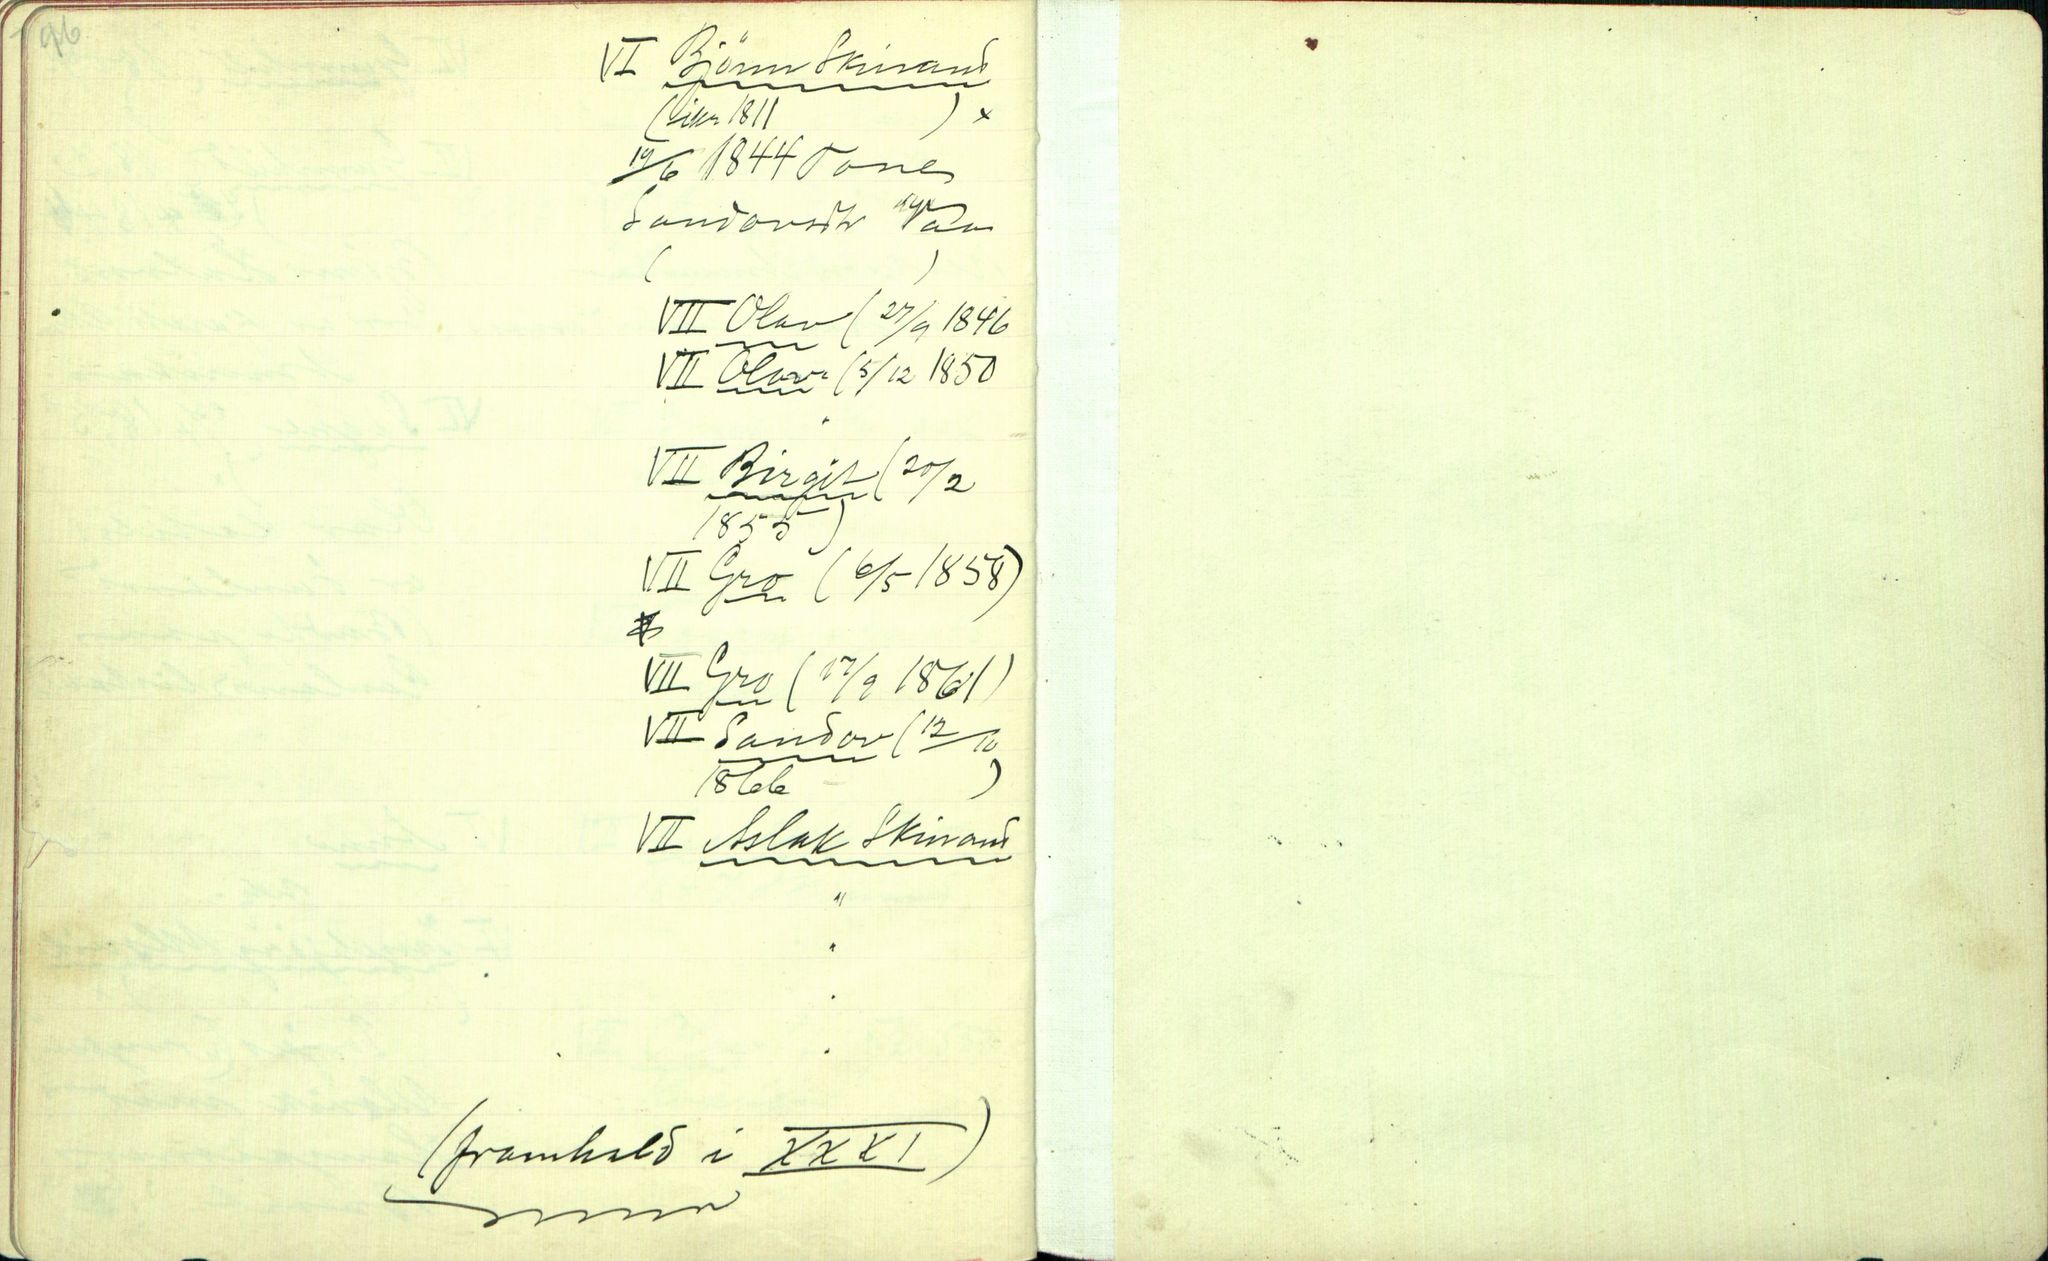 96
VI Björn Skinand
( 1811 ) x
19/6 1844 Tone
Sandovsdtr
( )
VII Olav (27/9 1846
VII Olav (5/12 1850
"
VII Birgit (20/2
1855)
VII Gro (6/5 1858)
VII Gro (17/9 1861)
VII Sandov (12/10
1866 )
VII Aslak Skinand
"
"
(framhald i XXXI)